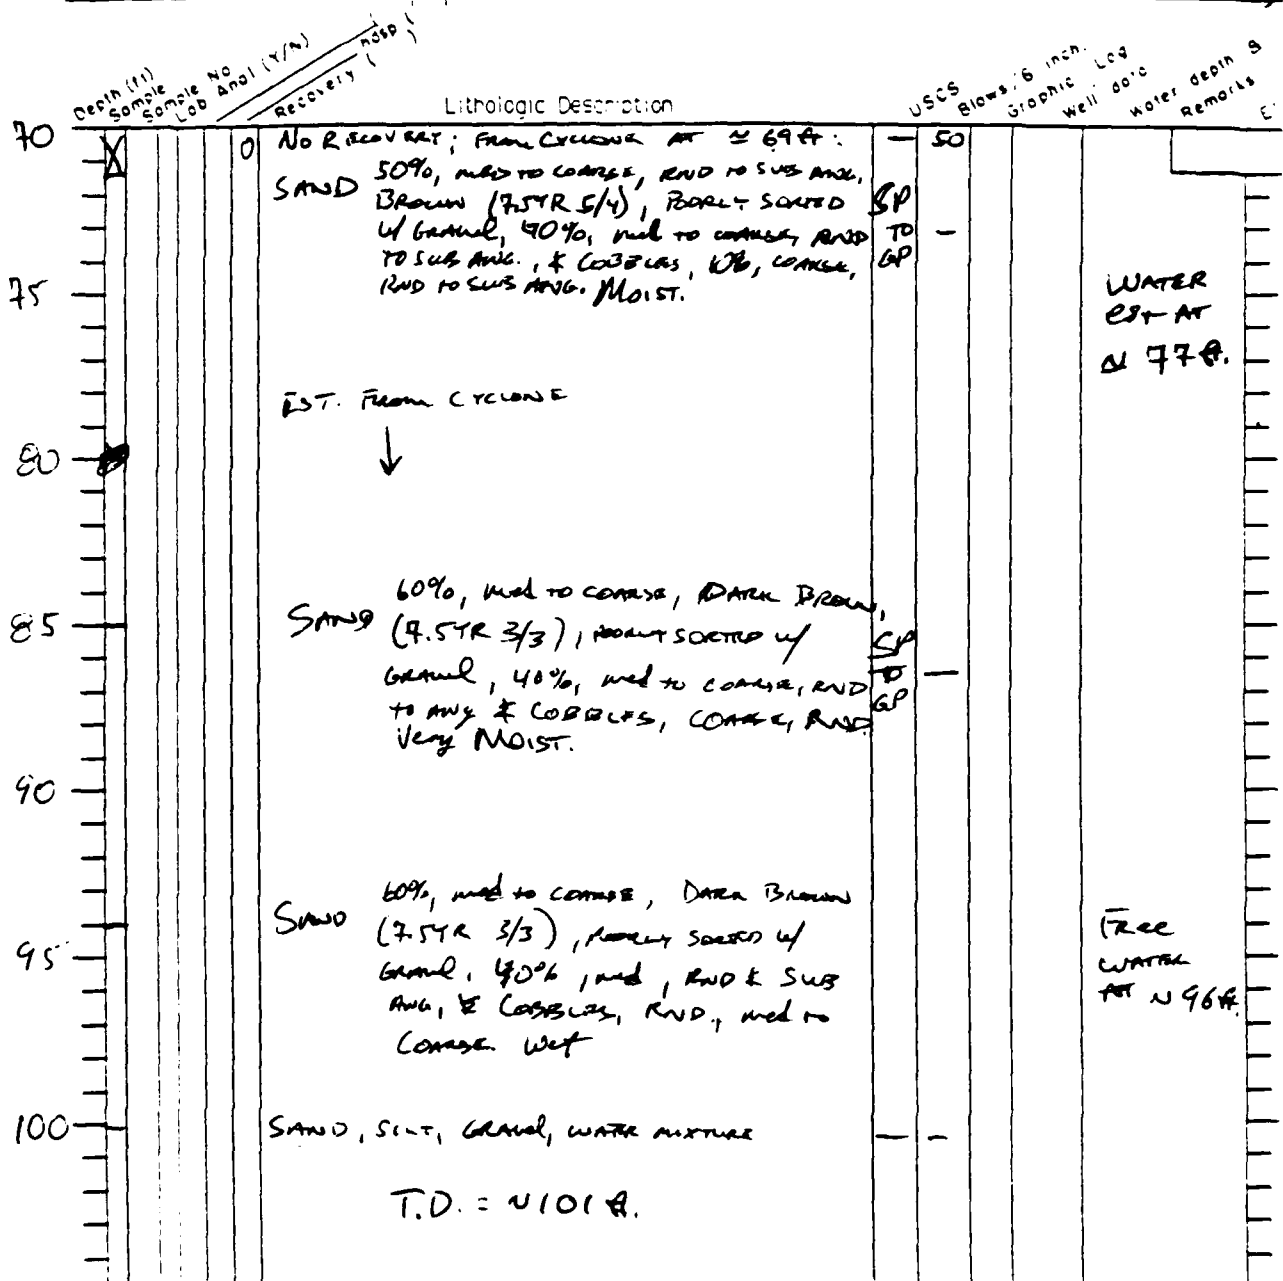 Depth (ft)
Sample
Sample No
Lab Anal (Y/N)
Recovery (
Lithologic Description
USCS
Blows/6 inch.
Graphic Log
Well data
Water depth &
Remarks
70
0
NO RECOVERY; FROM CYCLONE AT ≃ 69 ft:
— 50
SAND 50%, MED TO COARSE, RND TO SUB ANG,
BROWN (7.5YR 5/4), POORLY SORTED
W/ GRAVEL, 40%, med to COARSE, RND
TO SUB ANG., & COBBLES, 10%, COARSE,
RND TO SUB ANG. MOIST.
SP
TO —
GP
75
WATER
est AT
~ 77 ft.
EST. FROM CYCLONE
↓
80
SAND 60%, med TO COARSE, DARK BROWN,
85
(7.5YR 3/3), POORLY SORTED w/
GRAVEL, 40%, med to COARSE, RND
to ang & COBBLES, COARSE, RND
Very MOIST.
SP
TO —
GP
90
SAND 60%, med to COARSE, DARK BROWN
(7.5YR 3/3), POORLY SORTED w/
95
GRAVEL, 40%, med, RND & SUB
ANG, & COBBLES, RND., med to
COARSE. Wet
Free
WATER
AT ~ 96 ft.
100
SAND, SILT, GRAVEL, WATER MIXTURE
— —
T.D. = ~101 ft.